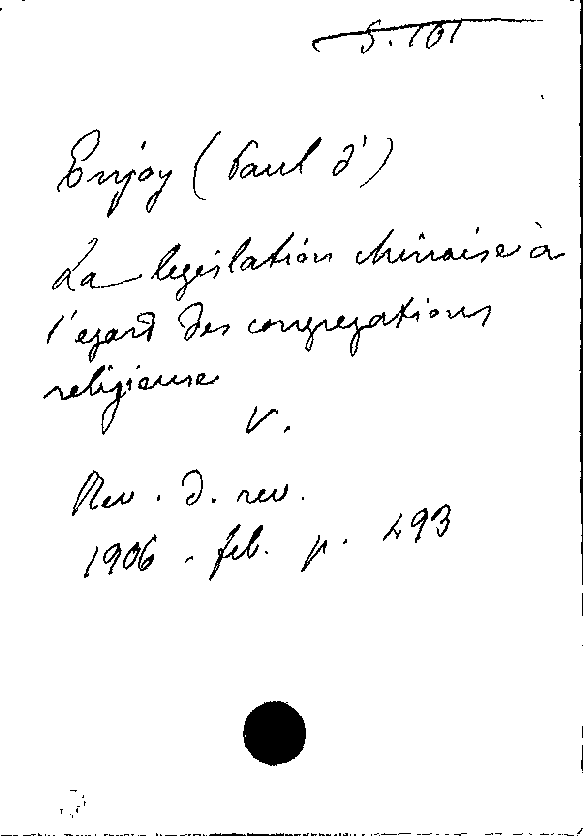 S. 101
Enjoy (Paul d')
La legislation chinoise à
l'egard des congregations
religieuse
V.
Rev. d. rev.
1906 - feb. p. 493